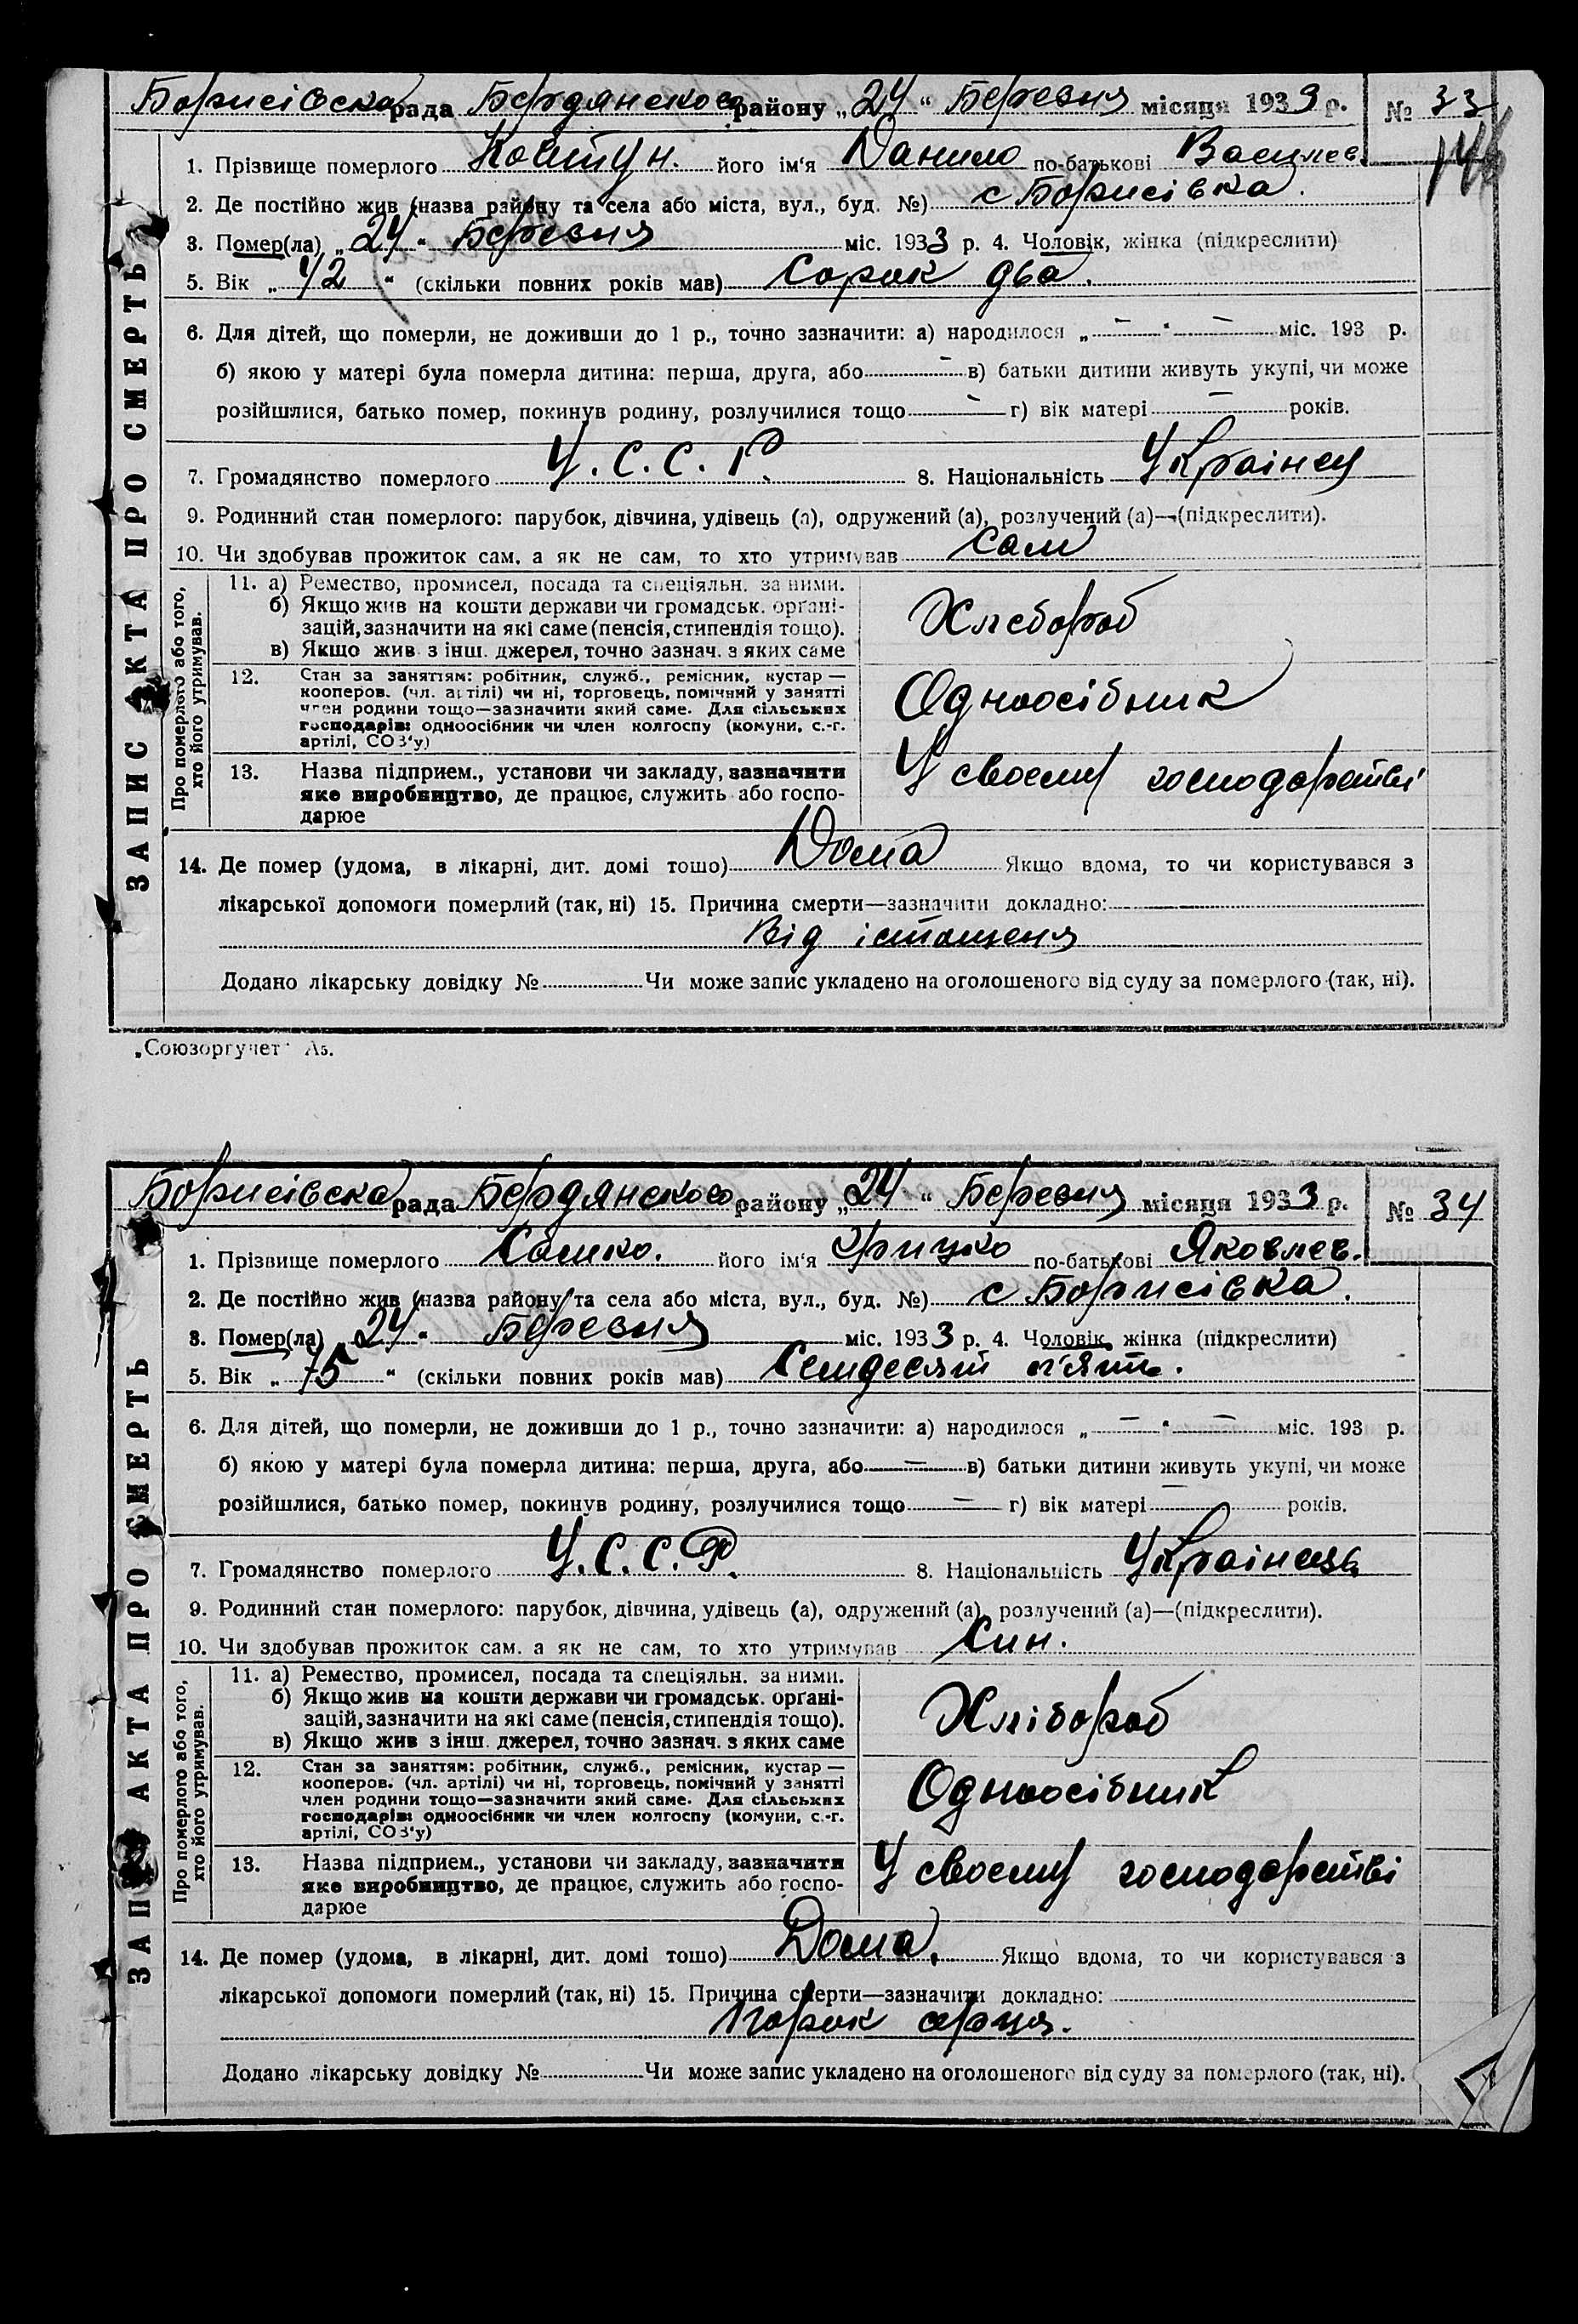 Борисівска рада Бердянского району „24“ Березня місяця 1933 р. № 33
146
1. Прізвище померлого Ковтун. його ім‘я Данило по-батькові Васил̇ев.
2. Де постійно жив (назва району та села або міста, вул., буд. №) с Борисівка.
3. Помер(ла) „24“ Березня міс. 1933 р. 4. Чоловік, жінка (підкреслити)
5. Вік „42“ (скільки повних років мав) Сорок два.
6. Для дітей, що померли, не доживши до 1 р., точно зазначити: а) народилося „— “ — міс. 193 р.
б) якою у матері була померла дитина: перша, друга, або — в) батьки дитини живуть укупі, чи може
розійшлися, батько помер, покинув родину, розлучилися тощо — г) вік матері — років.
7. Громадянство померлого У.С.С.Р. 8. Національність Українец
9. Родинний стан померлого: парубок, дівчина, удівець (а), одружений (а), розлучений (а)—(підкреслити).
10. Чи здобував прожиток сам, а як не сам, то хто утримував Сам
ЗАПИС АКТА ПРО СМЕРТЬ
Про померлого або того, хто його утримував.
11. а) Ремество, промисел, посада та спеціяльн. за ними.
б) Якщо жив на кошти держави чи громадськ. орґані-
зацій, зазначити на які саме (пенсія, стипендія тощо).
в) Якщо жив з інш. джерел, точно зазнач. з яких саме
Хлебороб
12. Стан за заняттям: робітник, служб., ремісник, кустар —
кооперов. (чл. артілі) чи ні, торговець, помічний у занятті
член родини тощо—зазначити який саме. Для сільських
господарів: одноосібник чи член колгоспу (комуни, с.-г.
артілі, СОЗ‘у)
Одноосібник
13. Назва підприєм., установи чи закладу, зазначити
яке виробництво, де працює, служить або госпо-
дарює
У своему господарстві
14. Де помер (удома, в лікарні, дит. домі тощо) Дома Якщо вдома, то чи користувався з
лікарської допомоги померлий (так, ні) 15. Причина смерти—зазначити докладно:
Від істощеня
Додано лікарську довідку № Чи може запис укладено на оголошеного від суду за померлого (так, ні).
„Союзоргучет“ Аз.
Борисівска рада Бердянского району „24“ Березня місяця 1933 р. № 34
1. Прізвище померлого його ім‘я Грицко по-батькові Яковлев.
2. Де постійно жив (назва району та села або міста, вул., буд. №) с Борисівка.
3. Помер(ла) 24“ Березня міс. 1933 р. 4. Чоловік, жінка (підкреслити)
5. Вік „75“ (скільки повних років мав) Семдесят п'ять.
6. Для дітей, що померли, не доживши до 1 р., точно зазначити: а) народилося „— “ — міс. 193 р.
б) якою у матері була померла дитина: перша, друга, або — в) батьки дитини живуть укупі, чи може
розійшлися, батько помер, покинув родину, розлучилися тощо — г) вік матері — років.
7. Громадянство померлого У.С.С.Р. 8. Національність Українець
9. Родинний стан померлого: парубок, дівчина, удівець (а), одружений (а), розлучений (а)—(підкреслити).
10. Чи здобував прожиток сам, а як не сам, то хто утримував Син.
ЗАПИС АКТА ПРО СМЕРТЬ
Про померлого або того, хто його утримував.
11. а) Ремество, промисел, посада та спеціяльн. за ними.
б) Якщо жив на кошти держави чи громадськ. орґані-
зацій, зазначити на які саме (пенсія, стипендія тощо).
в) Якщо жив з інш. джерел, точно зазнач. з яких саме
Хлібороб
12. Стан за заняттям: робітник, служб., ремісник, кустар —
кооперов. (чл. артілі) чи ні, торговець, помічний у занятті
член родини тощо—зазначити який саме. Для сільських
господарів: одноосібник чи член колгоспу (комуни, с.-г.
артілі, СОЗ‘у)
Одноосібник
13. Назва підприєм., установи чи закладу, зазначити
яке виробництво, де працює, служить або госпо-
дарює
У своему господарстві
14. Де помер (удома, в лікарні, дит. домі тощо) Дома. Якщо вдома, то чи користувався з
лікарської допомоги померлий (так, ні) 15. Причина смерти—зазначити докладно:
Порок серця.
Додано лікарську довідку № Чи може запис укладено на оголошеного від суду за померлого (так, ні).